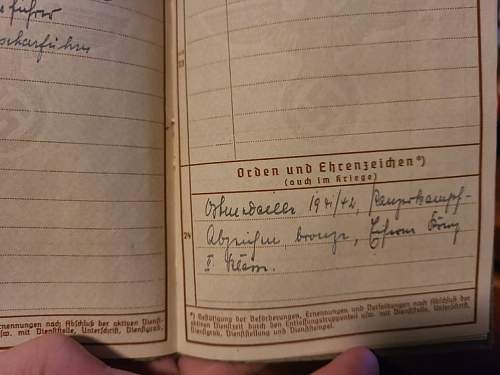 führer
scharführer
Orden und Ehrenzeichen*)
(auch im Kriege)
24
Ostmedaille 1941/42, Panzerkampf-
Abzeichen bronze, Eisern Kreuz
II Klasse.
*) Bestätigung der Beförderungen, Ernennungen und Verleihungen nach Abschluß der
aktiven Dienstzeit durch den Entlassungstruppenteil usw. mit Dienststelle, Unterschrift,
Dienstgrad, Dienststellung und Dienststempel.
Ernennungen nach Abschluß der aktiven Dienst-
usw. mit Dienststelle, Unterschrift, Dienstgrad,